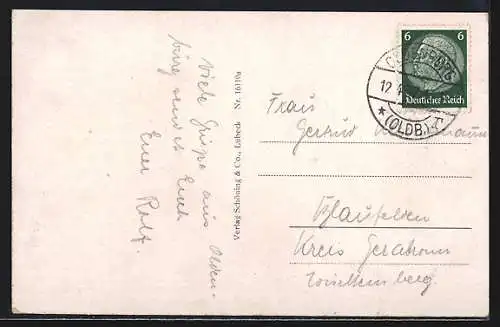 Viele Grüße aus Olden-
burg sendet Euch
Euer Rolf.
Verlag Schöning & Co., Lübeck Nr. 16110a
6 6
Deutsches Reich
12.
* (OLDB)
Frau
Gertrud
Blaufelden
Kreis Gerabronn
Württemberg.